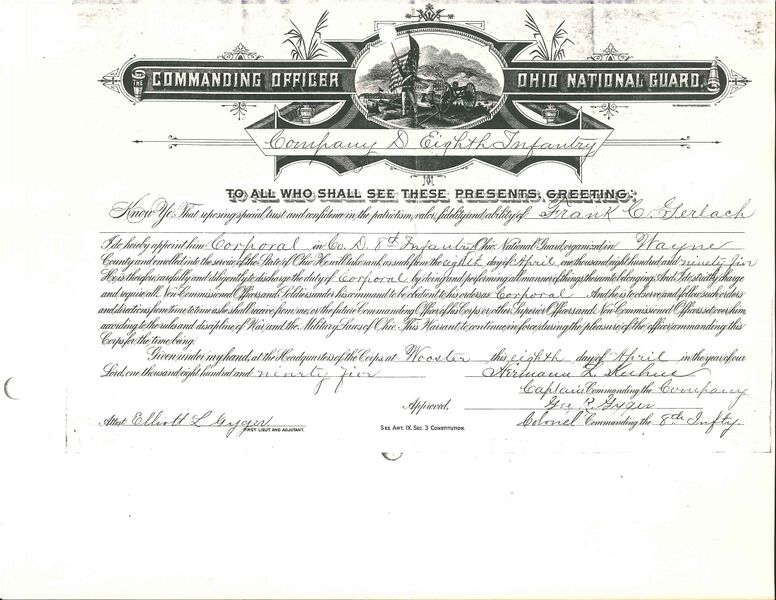 THE COMMANDING OFFICER OHIO NATIONAL GUARD.
Company D Eighth Infantry
TO ALL WHO SHALL SEE THESE PRESENTS, GREETING:
Know Ye, That reposing special trust and confidence in the patriotism, valor, fidelity and ability of Frank C. Gerlach
I do hereby appoint him Corporal in Co. D. 8th Infantry Ohio National Guard, organized in Wayne
County and enrolled into the service of the State of Ohio. He will take rank as such from the eighth day of April one thousand eight hundred and ninety five
He is therefore carefully and diligently to discharge the duty of Corporal by doing and performing all manner of things thereunto belonging. And I do strictly charge
and require all Non-Commissioned Officers and Soldiers under his command to be obedient to his orders as Corporal And he is to observe and follow such orders
and directions from time to time as he shall receive from me, or the future Commanding Officer of his Corps or other Superior Officers and Non-Commissioned Officers set over him,
according to the rules and discipline of War, and the Military Laws of Ohio. This Warrant to continue in force during the pleasure of the officer commanding this
Corps for the time being.
Given under my hand, at the Headquarters of the Corps at Wooster this eighth day of April in the year of our
Lord, one thousand eight hundred and ninety five
Captain Commanding the Company
Approved, Geo. R. Gyger
Attest Elliott L. Gyger Colonel Commanding the 8th Infty.
FIRST LIEUT. AND ADJUTANT. SEE ART. IX, SEC. 3 CONSTITUTION.